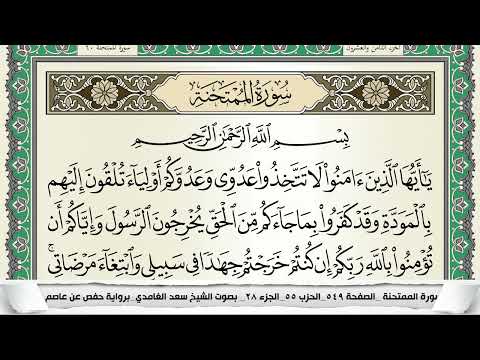 الجزء الثامن والعشرون
سورة الممتحنة ٦٠
سُورَةُ المُمتَحنَةِ
بِسْمِ اللَّهِ الرَّحْمَٰنِ الرَّحِيمِ
يَٰٓأَيُّهَا ٱلَّذِينَ ءَامَنُوا۟ لَا تَتَّخِذُوا۟ عَدُوِّى وَعَدُوَّكُمْ أَوْلِيَآءَ تُلْقُونَ إِلَيْهِم
بِٱلْمَوَدَّةِ وَقَدْ كَفَرُوا۟ بِمَا جَآءَكُم مِّنَ ٱلْحَقِّ يُخْرِجُونَ ٱلرَّسُولَ وَإِيَّاكُمْ أَن
تُؤْمِنُوا۟ بِٱللَّهِ رَبِّكُمْ إِن كُنتُمْ خَرَجْتُمْ جِهَٰدًا فِى سَبِيلِى وَٱبْتِغَآءَ مَرْضَاتِى ۚ
ورة الممتحنة _الصفحة ٥٤٩_الحزب ٥٥_الجزء ٢٨_ بصوت الشيخ سعد الغامدي_ برواية حفص عن عاصم